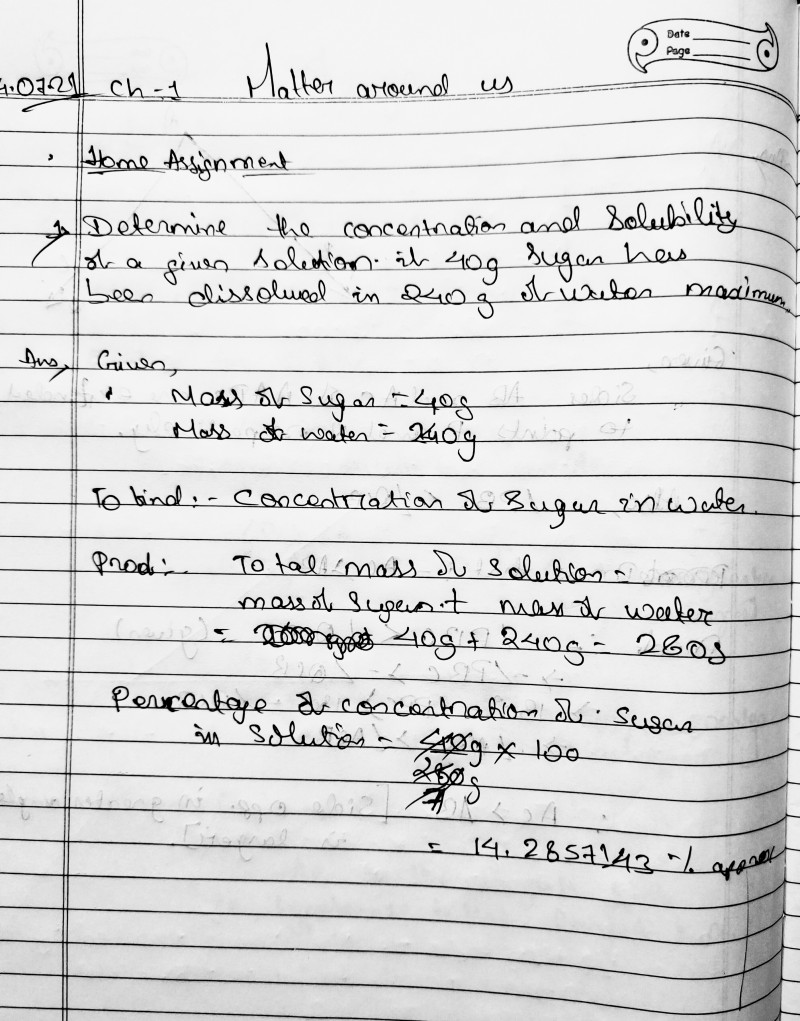 Date
Page
.07.21 Ch-1 Matter around us
Home Assignment
Determine the concentration and Solubility
of a given solution. if 40g Sugar has
been dissolved in 240 g of water maximum
Ans, Given,
Mass of Sugar = 40g
Mass of water = 240g
To find:- Concentration of Sugar in water.
Proof:- Total mass of solution =
mass of Sugar + mass of water
= 40g + 240g = 280g
Percentage of concentration of Sugar
in solution = 40g × 100
280g
7
= 14.2857143 % approx